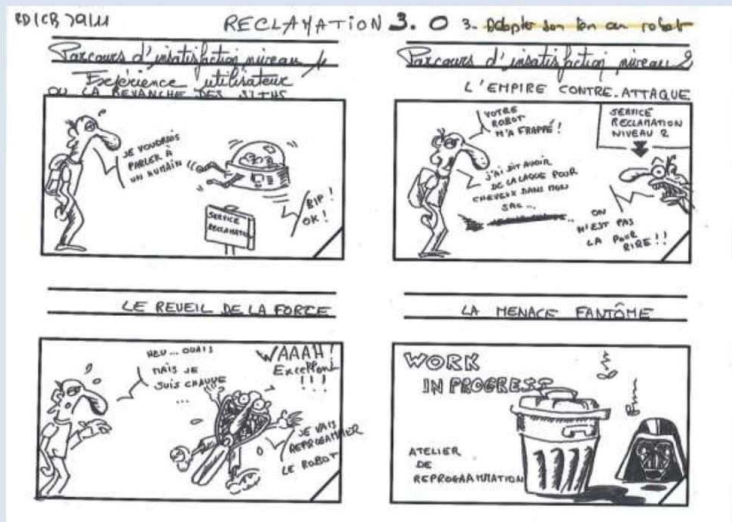 RECLAMATION 3.0
3- Adapter son ton au robot
Parcours d'insatisfaction niveau 1
Expérience utilisateur
OU LA REVANCHE DES SITHS
JE VOUDRAIS
PARLER À
UN HUMAIN !
BIP !
OK !
SERVICE
RECLAMATION
Parcours d'insatisfaction niveau 2
L'EMPIRE CONTRE-ATTAQUE
VOTRE
ROBOT
M'A FRAPPÉ !
J'AI DIT AVOIR
DE LA LAQUE POUR
CHEVEUX DANS MON
SAC...
SERVICE
RECLAMATION
NIVEAU 2
ON
N'EST PAS
LA POUR
RIRE !!
LE REVEIL DE LA FORCE
HEU... OUAIS
MAIS JE
SUIS CHAUVE
...
WAAAH !
Excellent
!!!
JE VAIS
REPROGRAMMER
LE ROBOT
LA MENACE FANTÔME
WORK
IN PROGRESS
ATELIER
DE
REPROGRAMMATION